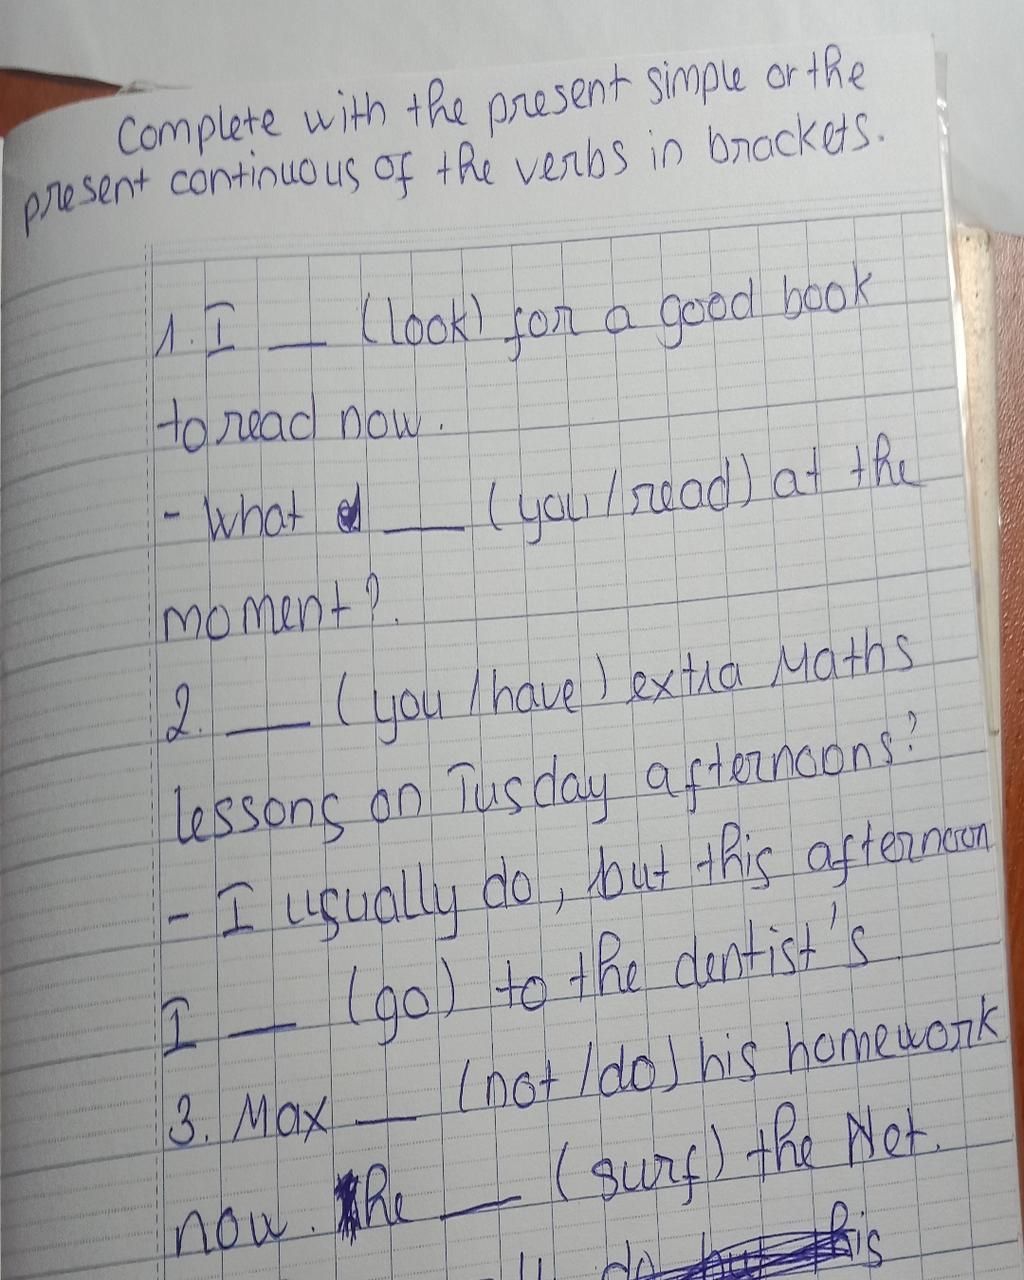 Complete with the present simple or the
present continuous of the verbs in brackets.
1. I ___ (look) for a good book
to read now.
- What ___ (you/read) at the
moment?
2. ___ (you/have) extra Maths
lessons on Tusday afternoons?
- I usually do, but this afternoon
I ___ (go) to the dentist's
3. Max ___ (not/do) his homework
now. He ___ (surf) the Net.
do his